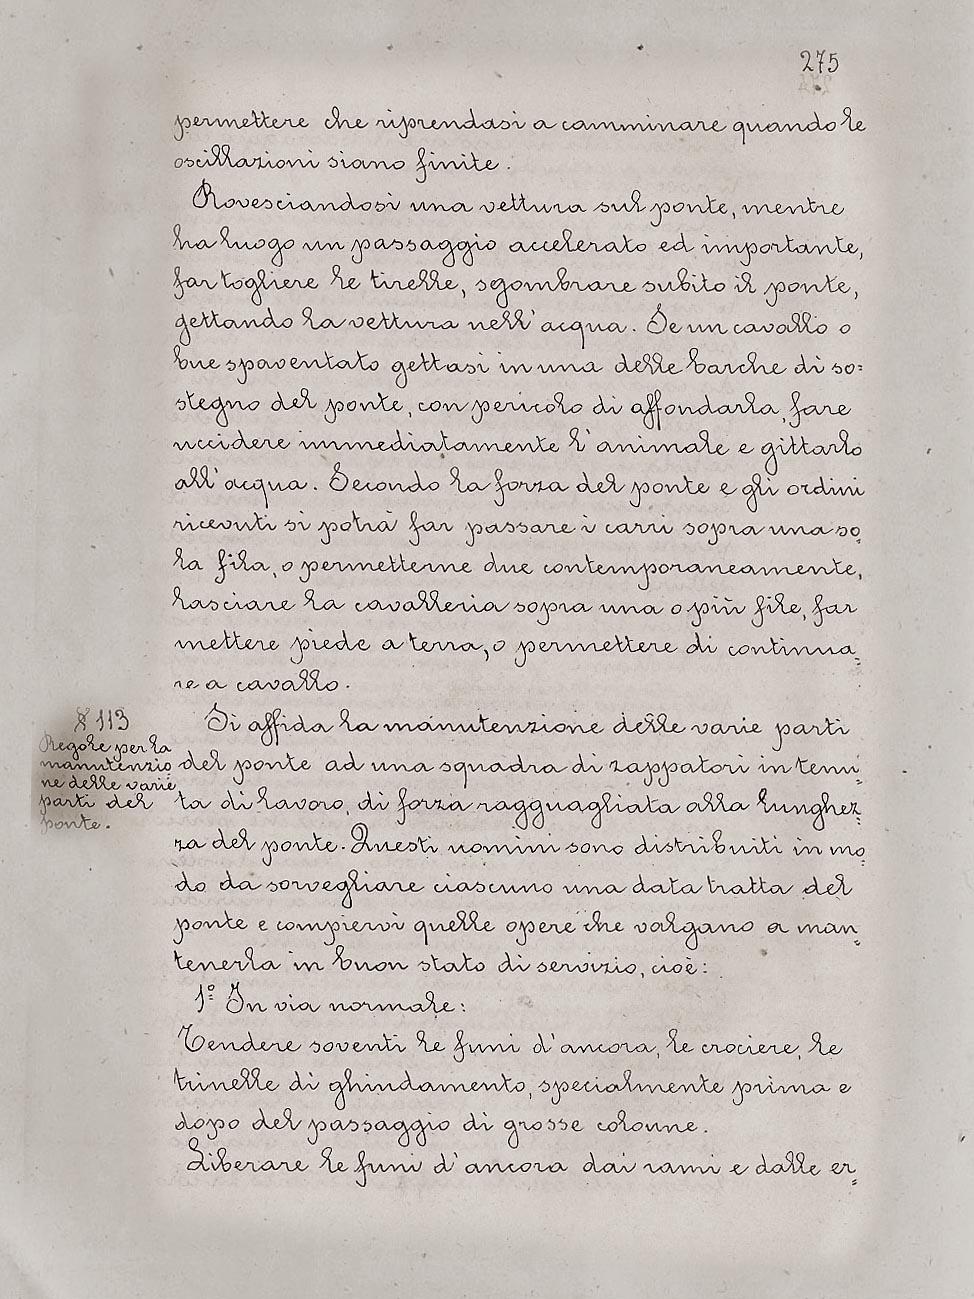 275
permettere che riprendasi a camminare quando le
oscillazioni siano finite.
Rovesciandosi una vettura sul ponte, mentre
ha luogo un passaggio accelerato ed importante,
far togliere le tirelle, sgombrare subito il ponte,
gettando la vettura nell'acqua. Se un cavallo o
bue spaventato gettasi in una delle barche di so=
stegno del ponte, con pericolo di affondarla, fare
uccidere immediatamente l'animale e gittarlo
all'acqua. Secondo la forza del ponte e gli ordini
ricevuti si potrà far passare i carri sopra una so=
la fila, o permetterne due contemporaneamente,
lasciare la cavalleria sopra una o più file, far
mettere piede a terra, o permettere di continua=
re a cavallo.
§ 113
Regole per la
manutenzio
ne delle varie
parti del
ponte.
Si affida la manutenzione delle varie parti
del ponte ad una squadra di zappatori in tenu=
ta di lavoro, di forza ragguagliata alla lunghez=
za del ponte. Questi uomini sono distribuiti in mo=
do da sorvegliare ciascuno una data tratta del
ponte e compiervi quelle opere che valgano a man=
tenerla in buon stato di servizio, cioè:
1º In via normale:
Tendere soventi le funi d'ancora, le crociere, le
trinelle di ghindamento, specialmente prima e
dopo del passaggio di grosse colonne.
Liberare le funi d'ancora dai rami e dalle er=